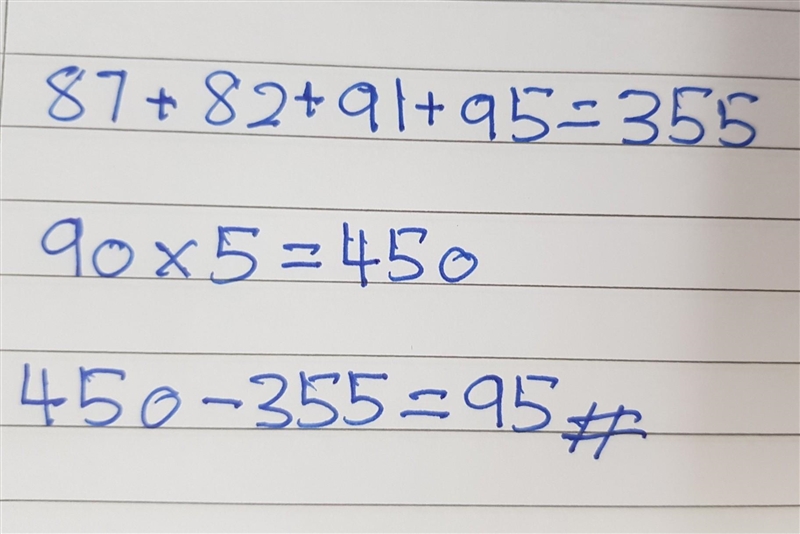 87+82+91+95=355
90×5=450
450-355=95#